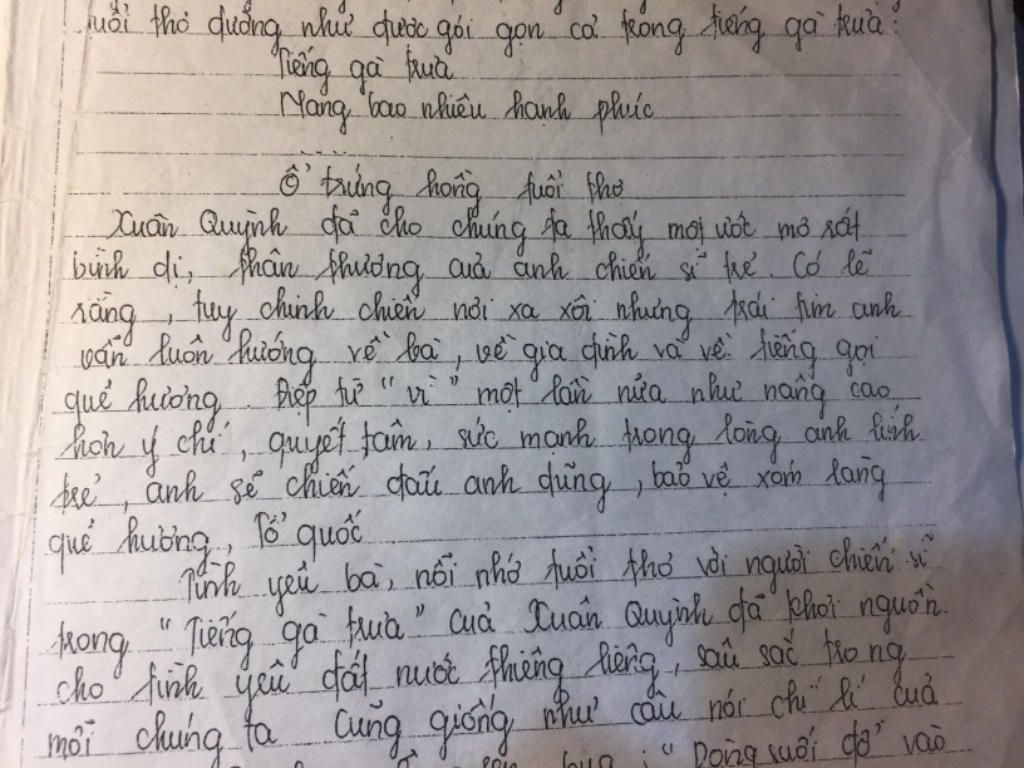 tuổi thơ dường như được gói gọn cả trong tiếng gà trưa:
Tiếng gà trưa
Mang bao nhiêu hạnh phúc
.....
Ổ trứng hồng tuổi thơ
Xuân Quỳnh đã cho chúng ta thấy một ước mơ rất
bình dị, thân thương của anh chiến sĩ trẻ. Có lẽ
rằng, tuy chinh chiến nơi xa xôi nhưng trái tim anh
vẫn luôn hướng về bà, về gia đình và về tiếng gọi
quê hương. Điệp từ "vì" một lần nữa như nâng cao
hơn ý chí, quyết tâm, sức mạnh trong lòng anh lính
trẻ, anh sẽ chiến đấu anh dũng, bảo vệ xóm làng
quê hương, Tổ quốc
Tình yêu bà, nỗi nhớ tuổi thơ với người chiến sĩ
trong "Tiếng gà trưa" của Xuân Quỳnh đã khơi nguồn
cho tình yêu đất nước thiêng liêng, sâu sắc trong
mỗi chúng ta Cũng giống như câu nói chí lí của
"Dòng suối đổ vào